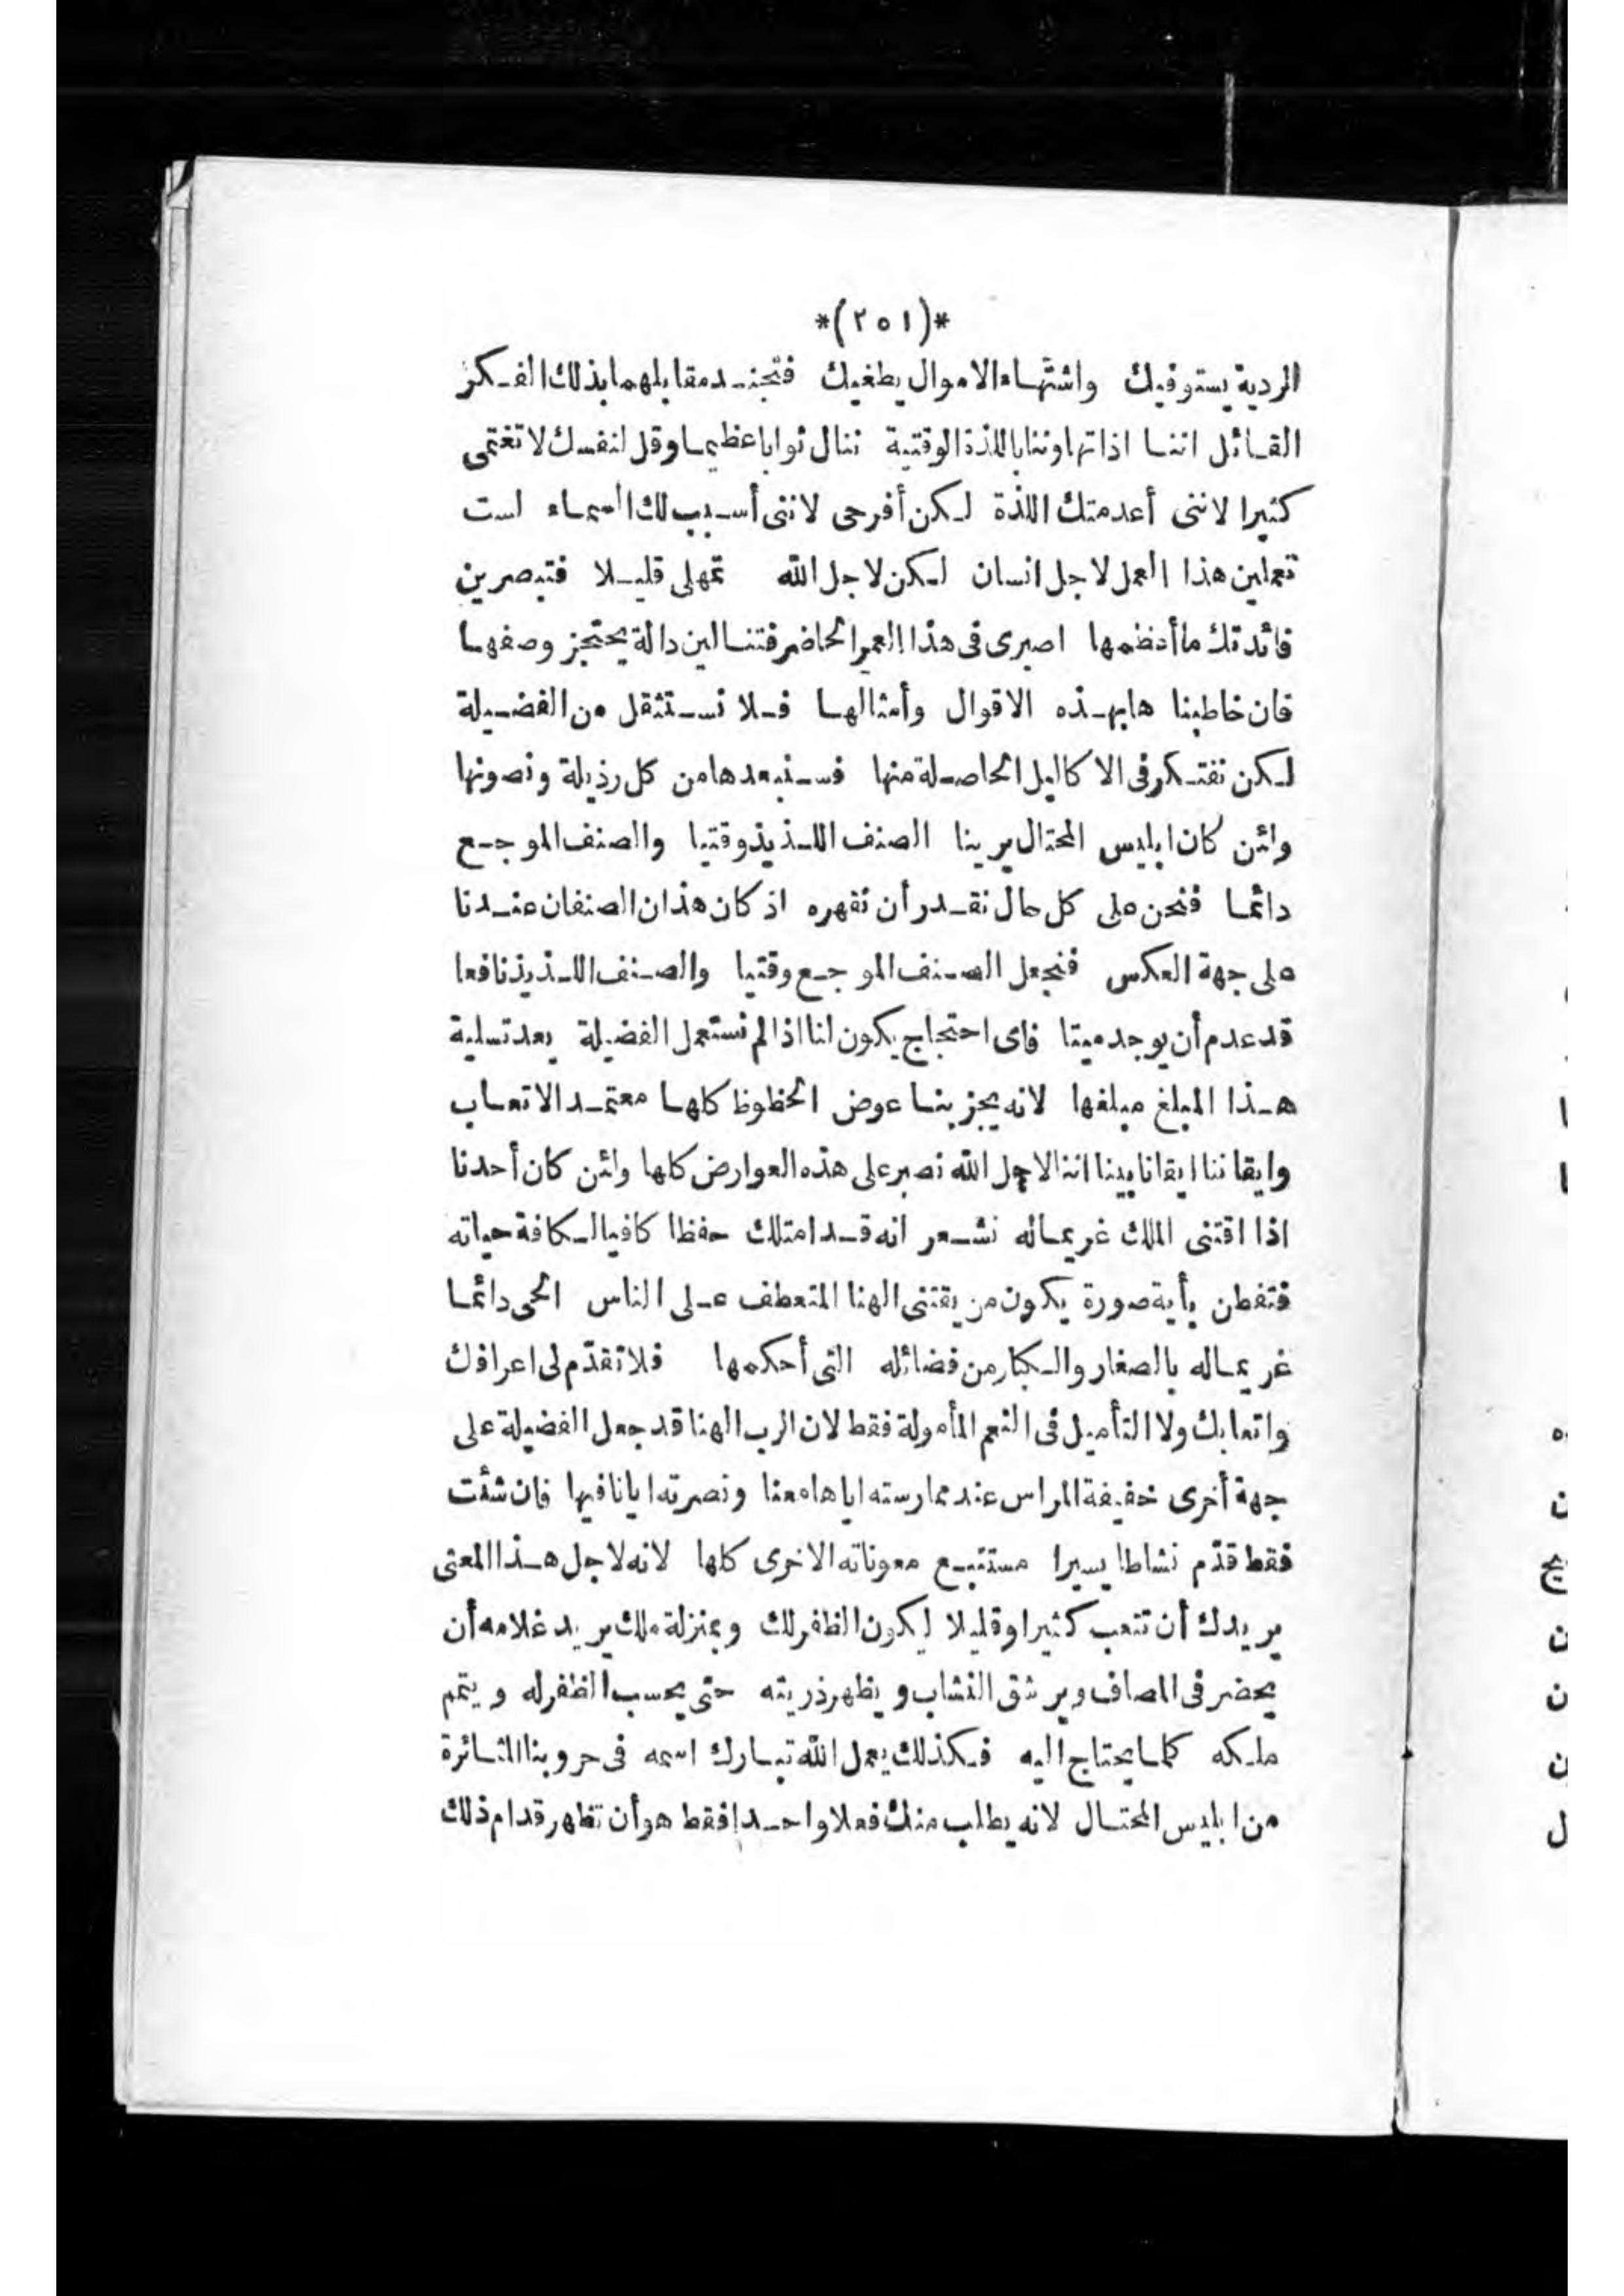 *(٢٥١)*
الردية يستوفيك واشتهاء الاموال يطغيك فتجند مقابلهما بذلك الفكر
القائل اننا اذا تهاوننا باللذة الوقتية ننال ثوابا عظيما وقل لنفسك لا تغتمى
كثيرا لاننى أعدمتك اللذة لكن أفرحى لاننى أسبب لك السماء لست
تعملين هذا العمل لاجل انسان لكن لاجل الله تمهلى قليلا فتبصرين
فائدتك ما أعظمها اصبرى فى هذا العمر الحاضر فتنالين دالة يحتجز وصفها
فان خاطبنا ها بهذه الاقوال وأمثالها فلا نستثقل من الفضيلة
لكن نفتكر فى الا كاليل الحاصلة منها فسنبعدها من كل رذيلة ونصونها
وائن كان ابليس المحتال يرينا الصنف اللذيذ وقتيا والصنف الموجع
دائما فنحن على كل حال نقدر أن نقهره اذ كان هذان الصنفان عندنا
على جهة العكس فنجعل الصنف الموجع وقتيا والصنف اللذيذ نافعا
قد عدم أن يوجد ميتا فاى احتجاج يكون لنا اذا لم نستعمل الفضيلة بعد تسلية
هذا المبلغ مبلغها لانه يجزينا عوض الحظوظ كلها معتمد الاتعاب
وايقاننا ايقانا بينا اننا لاجل الله نصبر على هذه العوارض كلها وائن كان أحدنا
اذا اقتنى الملك غريماله نشعر انه قد امتلك حفظا كافيا لكافة حياته
فتفطن بأية صورة يكون من يقتنى الهنا المتعطف على الناس الحى دائما
غريماله بالصغار والكبار من فضائله التى أحكمها فلا تقدّم لى اعراقك
واتعابك ولا التأميل فى النعم المأمولة فقط لان الرب الهنا قد جعل الفضيلة على
جهة أخرى خفيفة المراس عند ممارسته اياها معنا ونصرته ايانا فيها فان شئت
فقط قدّم نشاطا يسيرا مستتبع معوناته الاخرى كلها لانه لاجل هذا المعنى
يريدك أن تتعب كثيرا وقليلا ليكون الظفر لك وبمنزلة ملك يريد غلامه أن
يحضر فى المصاف ويرشق النشاب ويظهر ذريته حتى يحسب الظفر له ويتمم
ملكه كلما يحتاج اليه فكذلك يعمل الله تبارك اسمه فى حروبنا الثائرة
من ابليس المحتال لانه يطلب منك فعلا واحدا فقط هو أن تظهر قدام ذلك